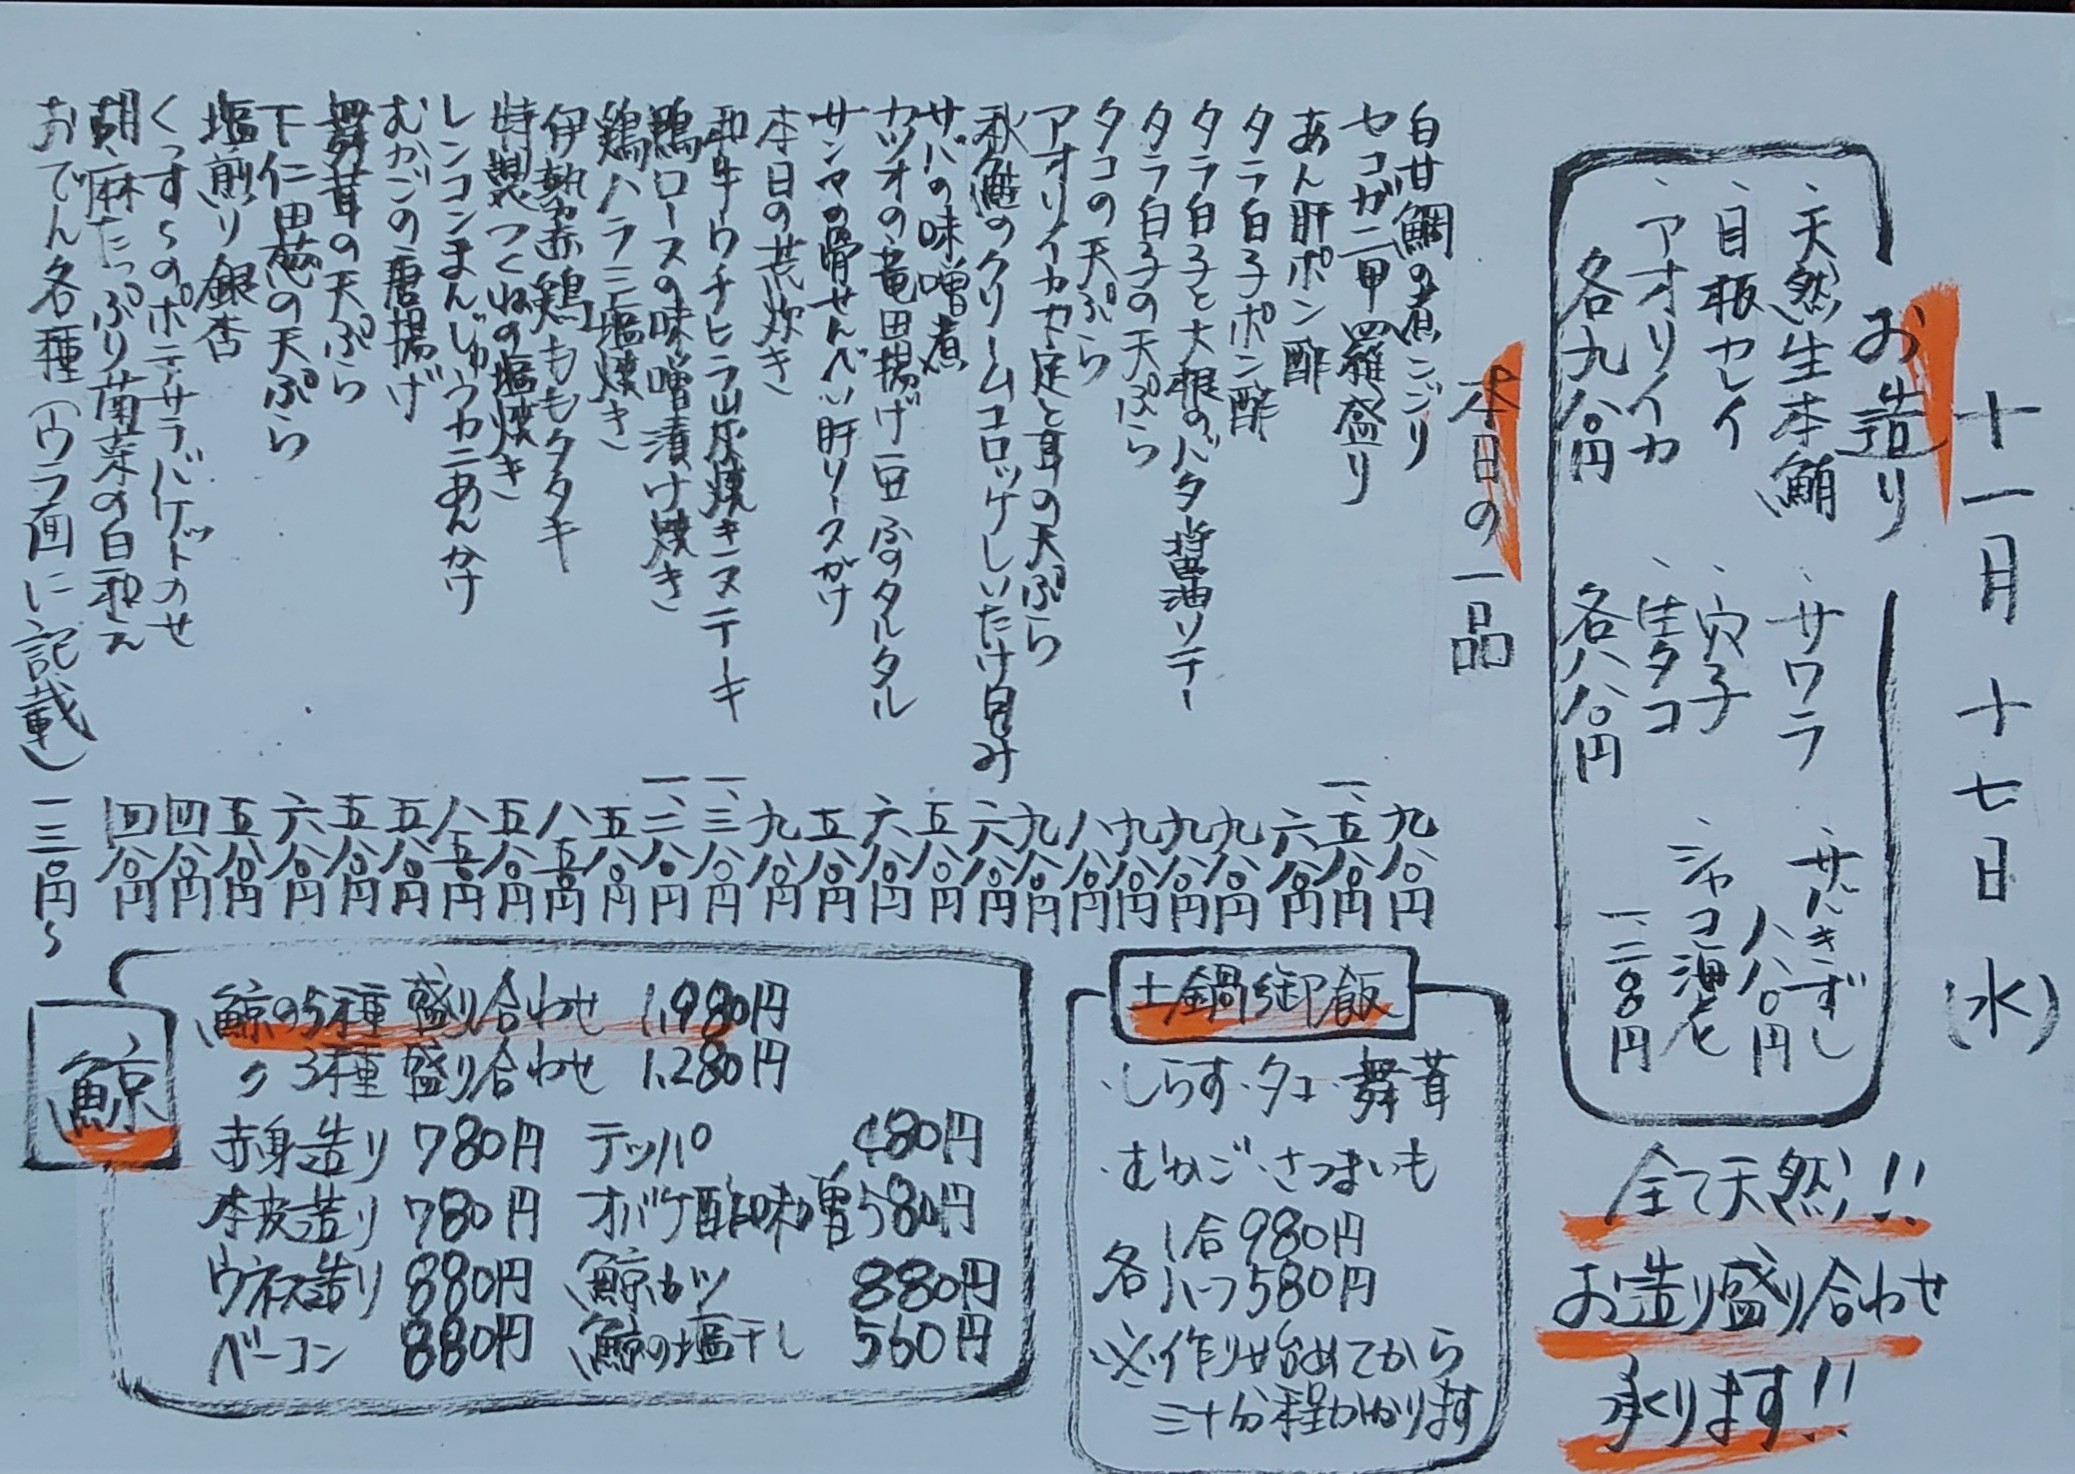 十一月十七日(水)
お造り
、天然生本鮪
、目板カレイ
、アオリイカ
各九八〇円
、サワラ
、穴子
、生タコ
各八八〇円
、サバきずし
八八〇円
、シャコ海老
一、二八〇円
全て天然!!
お造り盛り合わせ
承ります!!
本日の一品
白甘鯛の煮こごり 九八〇円
セコガニ甲羅盛り 一、五八〇円
あん肝ポン酢 六八〇円
タラ白子ポン酢 九八〇円
タラ白子と大根のバタ醤油ソテー 九八〇円
タラ白子の天ぷら 九八〇円
タコの天ぷら 八八〇円
アオリイカ下足と耳の天ぷら 九八〇円
秋鮭のクリームコロッケしいたけ包み 六八〇円
サバの味噌煮 五八〇円
カツオの竜田揚げ豆ふのタルタル 六八〇円
サンマの骨せんべい肝ソースがけ 五八〇円
本日の荒炊き 九八〇円
和牛ウチヒラ炭焼きステーキ 一、三八〇円
鴨ロースの味噌漬け焼き 一、二八〇円
鶏ハラミ塩焼き 五八〇円
伊勢赤鶏ももタタキ 八五〇円
特製つくねの塩焼き 五八〇円
レンコンまんじゅうカニあんかけ 八五〇円
むかごの唐揚げ 五八〇円
舞茸の天ぷら 五八〇円
下仁田葱の天ぷら 六八〇円
塩煎り銀杏 五八〇円
くっす〜のポテサラバケットのせ 四八〇円
胡麻たっぷり菊菜の白和え 四八〇円
おでん各種(ウラ面に記載) 一三〇円〜
土鍋御飯
・しらす・タコ・舞茸
・むかご・さつまいも
各 1合980円
ハーフ580円
※作り始めてから
三十分程かかります
鯨
鯨の5種盛り合わせ 1,980円
〃 3種盛り合わせ 1,280円
赤身造り 780円 テッパ 480円
本皮造り 780円 オバケ酢味噌 580円
ウネス造り 880円 鯨カツ 880円
ベーコン 880円 鯨の塩干し 560円